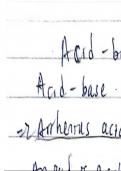 Acid-b
Acid-base.
⇒ Arrhenius acid